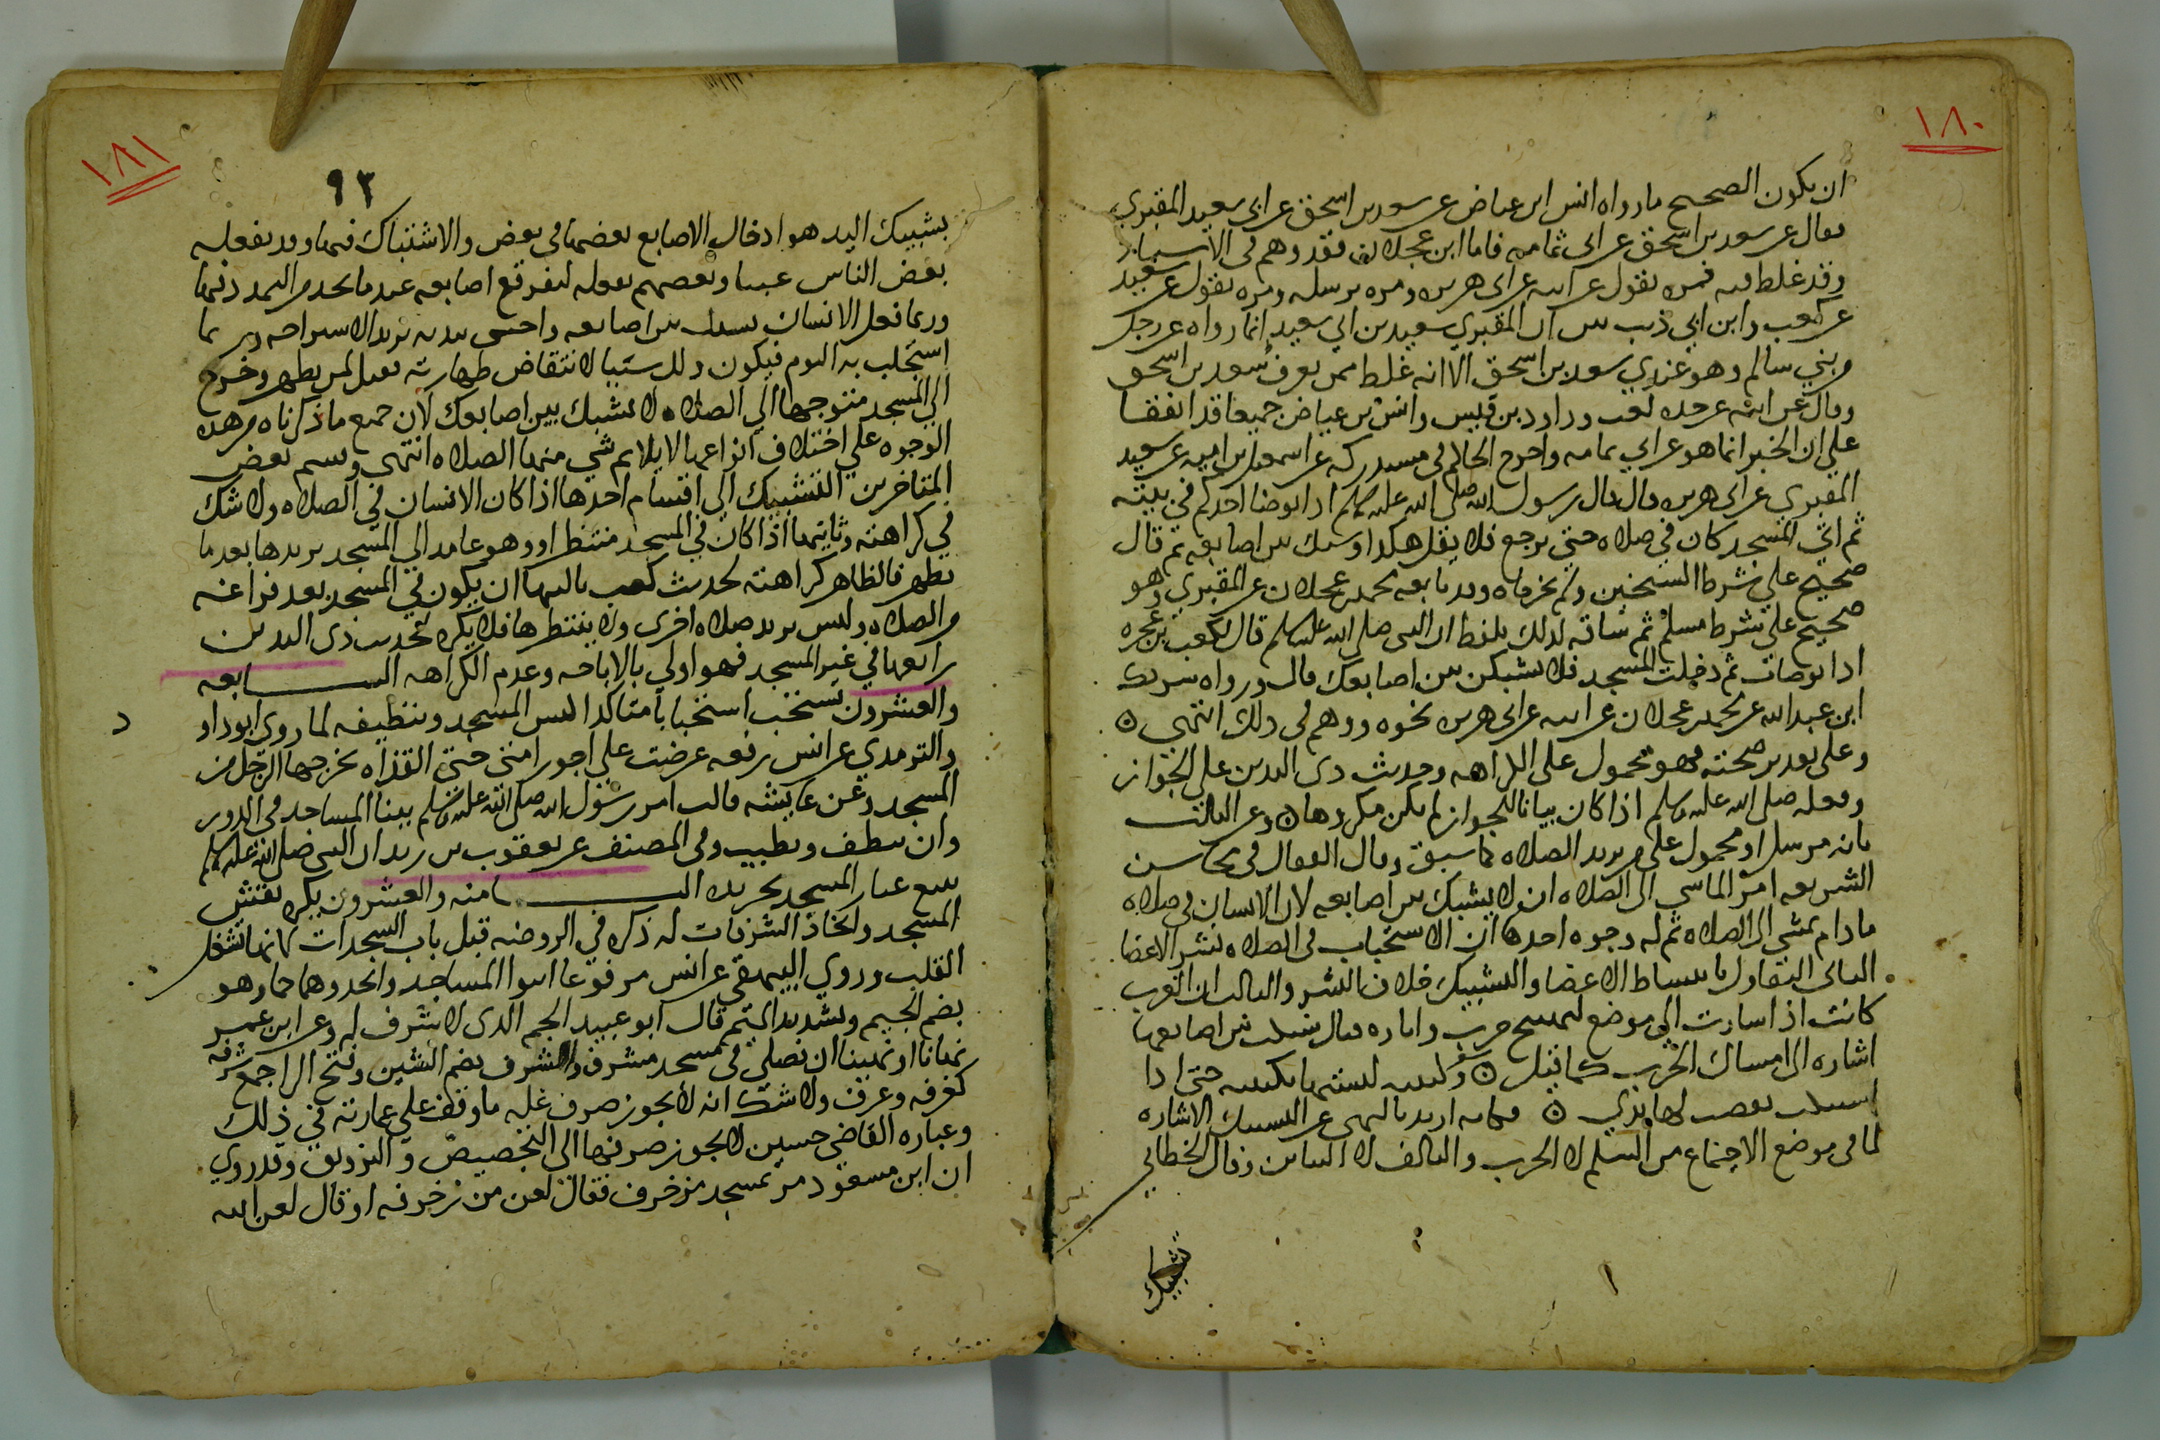 ١٨٠
ان يكون الصحيح ما رواه انس ابن عياض عن سعد بن اسحق عن ابي سعيد المقبري
فقال عن سعد بن اسحق عن ابي ثمامه فاما ابن عجلان فقد وهم في الاسناد
وقد غلط فيه فمره يقول عن ابيه عن ابي هريره ومره يرسله ومره يقول عن سعيد
عن كعب وابن ابي ذيب بين ان المقبري سعيد بن ابي سعيد انما رواه عن رجل
من بني سالم وهو عندي سعد بن اسحق الا انه غلط ممن يعرف سعد بن اسحق
وقال عن ابيه عن جده كعب وداود بن قيس وانس بن عياض جميعا قد اتفقا
علي ان الخبر انما هو عن ابي ثمامه واخرج الحاكم في مستدركه عن اسمعيل بن اميه عن سعيد
المقبري عن ابي هريره قال قال رسول الله صلى الله عليه وسلم اذا توضا احدكم في بيته
ثم اتي المسجد كان في صلاه حتي يرجع فلا يقل هكذا وشبك بين اصابعه ثم قال
صحيح علي شرط الشيخين ولم يخرجاه وقد تابعه محمد بن عجلان عن المقبري وهو
صحيح علي شرط مسلم ثم ساقه لذلك بلفظ ان النبي صلى الله عليه وسلم قال لكعب بن عجره
اذا توضات ثم دخلت المسجد فلا تشبكن بين اصابعك قال ورواه شريك
ابن عبد الله عن محمد بن عجلان عن ابيه عن ابي هريره نحوه ووهم في ذلك انتهى ه
وعلي تقدير صحته فهو محمول على الكراهه وحديث ذي اليدين علي الجواز
وفعله صلى الله عليه وسلم اذا كان بيانا للجواز لم يكن مكروها ه وعن الثالث
بانه مرسل او محمول علي من يريد الصلاه كما سبق وقال القفال في محاسن
الشريعه امر الماشي الى الصلاه ان لا يشبك بين اصابعه لان الانسان في صلاه
ما دام يمشي الى الصلاه ثم له وجوه احدها ان الاستحباب في الصلاه نشر الاعضا
الثاني التفاول بانبساط الاعضا والتشبيك خلاف النشر والثالث ان العرب
كانت اذا اشارت الي موضع حرب واثاره قتال شبكت بين اصابعها
اشاره الى امساك الحرب كما قيل ه شعر وكتيبه لبستها بكتيبه حتى اذا
اشتبكت نفضت لها يدي ه فكانه اريد بالنهي عن التشبيك الاشاره
لما في موضع الاجتماع من السلم لا الحرب والتالف لا التباين وقال الخطابي
تشبيك
١٨١
٩٢
تشبيك اليد هو ادخال الاصابع بعضها في بعض والاشتباك فيها وقد يفعله
بعض الناس عبثا وبعضهم يفعله ليفرقع اصابعه عند ما يجد من التمدد فيها
وربما فعل الانسان يشبك بين اصابعه واحتبى بيديه يريد الاستراحه وربما
استجلب به النوم فيكون ذلك سببا لانتقاض طهارته فقيل لمن تطهر وخرج
الي المسجد متوجها الي الصلاه لا تشبك بين اصابعك لان جميع ما ذكرناه من هذه
الوجوه علي اختلاف انواعها لا يلائم شي منها الصلاه انتهى وقسم بعض
المتاخرين التشبيك الي اقسام احدها اذا كان الانسان في الصلاه ولا شك
في كراهته وثانيها اذا كان في المسجد منتظرا او وهو عامد الي المسجد يريدها بعد ما
تطهر فالظاهر كراهته لحديث كعب ثالثها ان يكون في المسجد بعد فراغه
من الصلاه وليس يريد صلاه اخرى ولا ينتظرها فلا يكره لحديث ذي اليدين
رابعها في غير المسجد فهو اولي بالاباحه وعدم الكراهه السابعه
والعشرون يستحب استحبابا متاكدا كنس المسجد وتنظيفه لما روى ابو داود
والترمذي عن انس رفعه عرضت علي اجور امتي حتي القذاه يخرجها الرجل من
المسجد وعن عايشه قالت امر رسول الله صلى الله عليه وسلم ببنا المساجد في الدور
وان تنظف وتطيب وفي المصنف عن يعقوب بن زيد ان النبي صلى الله عليه وسلم
يتبع غبار المسجد بجريده الثامنه والعشرون يكره نقش
المسجد واتخاذ الشرفات له ذكره في الروضه قبل باب السجدات لانها تشغل
القلب وروي البيهقي عن انس مرفوعا ابنوا المساجد واتخذوها جما وهو
بضم الجيم وتشديد الميم قال ابو عبيد الجم الذي لا شرف له وعن ابن عمر
نهانا او نهينا ان نصلي في مسجد مشرف والشرف بضم الشين وفتح الرا جمع شرفه
كغرفه وغرف ولا شك انه لا يجوز صرف غله ما وقف علي عمارته في ذلك
وعباره القاضي حسين لا يجوز صرفها الى التجصيص والتزويق وقد روي
ان ابن مسعود مر بمسجد مزخرف فقال لعن من زخرفه او قال لعن الله